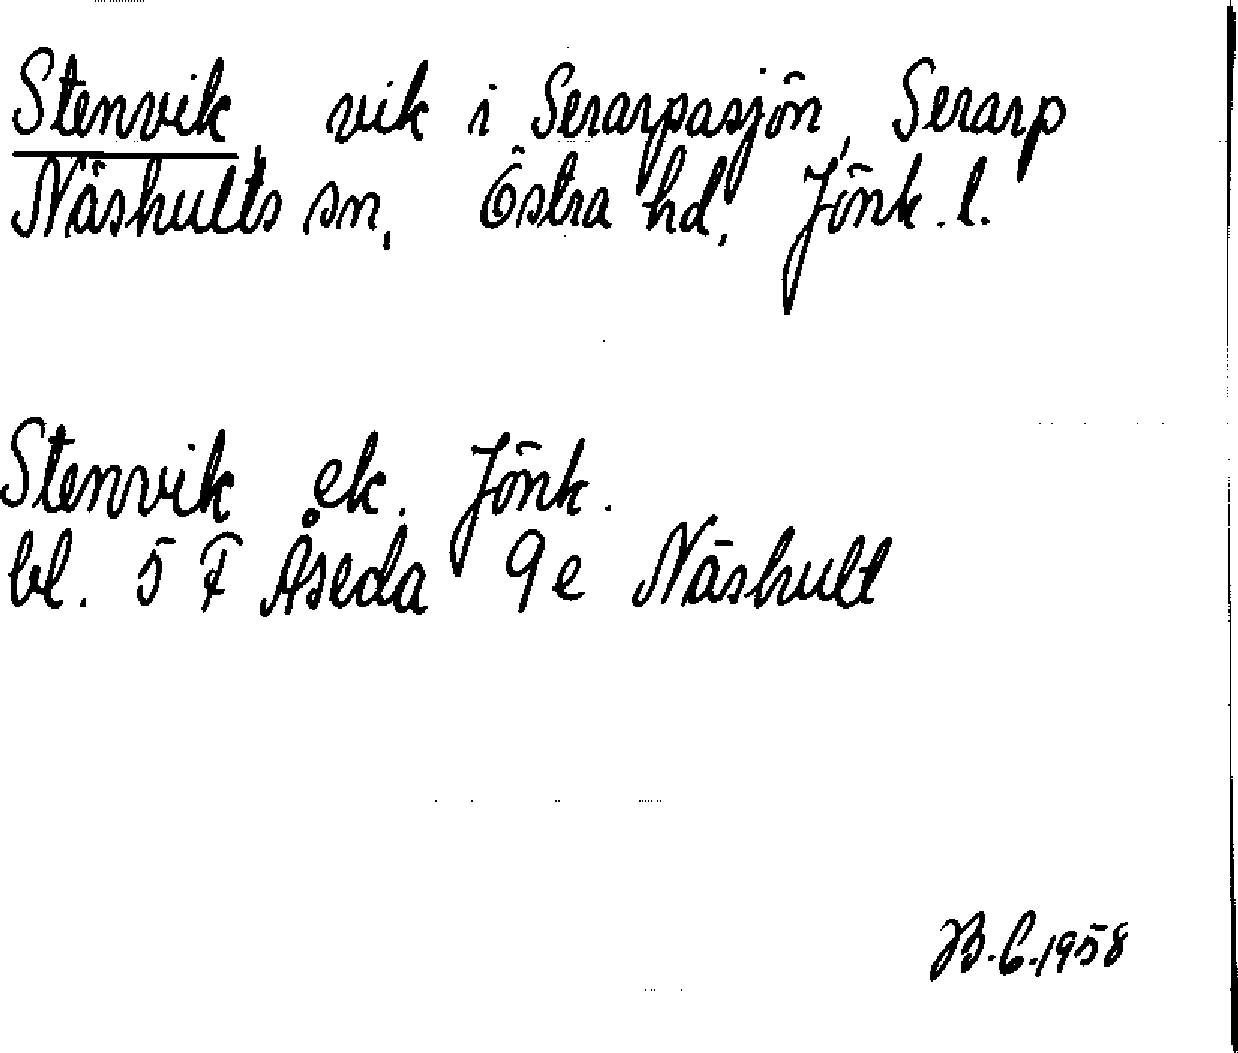 Stenvik, vik i Serarpasjön, Serarp
Näshults sn, Östra hd, Jönk. l.
Stenvik ek. Jönk.
bl. 5 F Åseda 9e Näshult
B.C. 1958